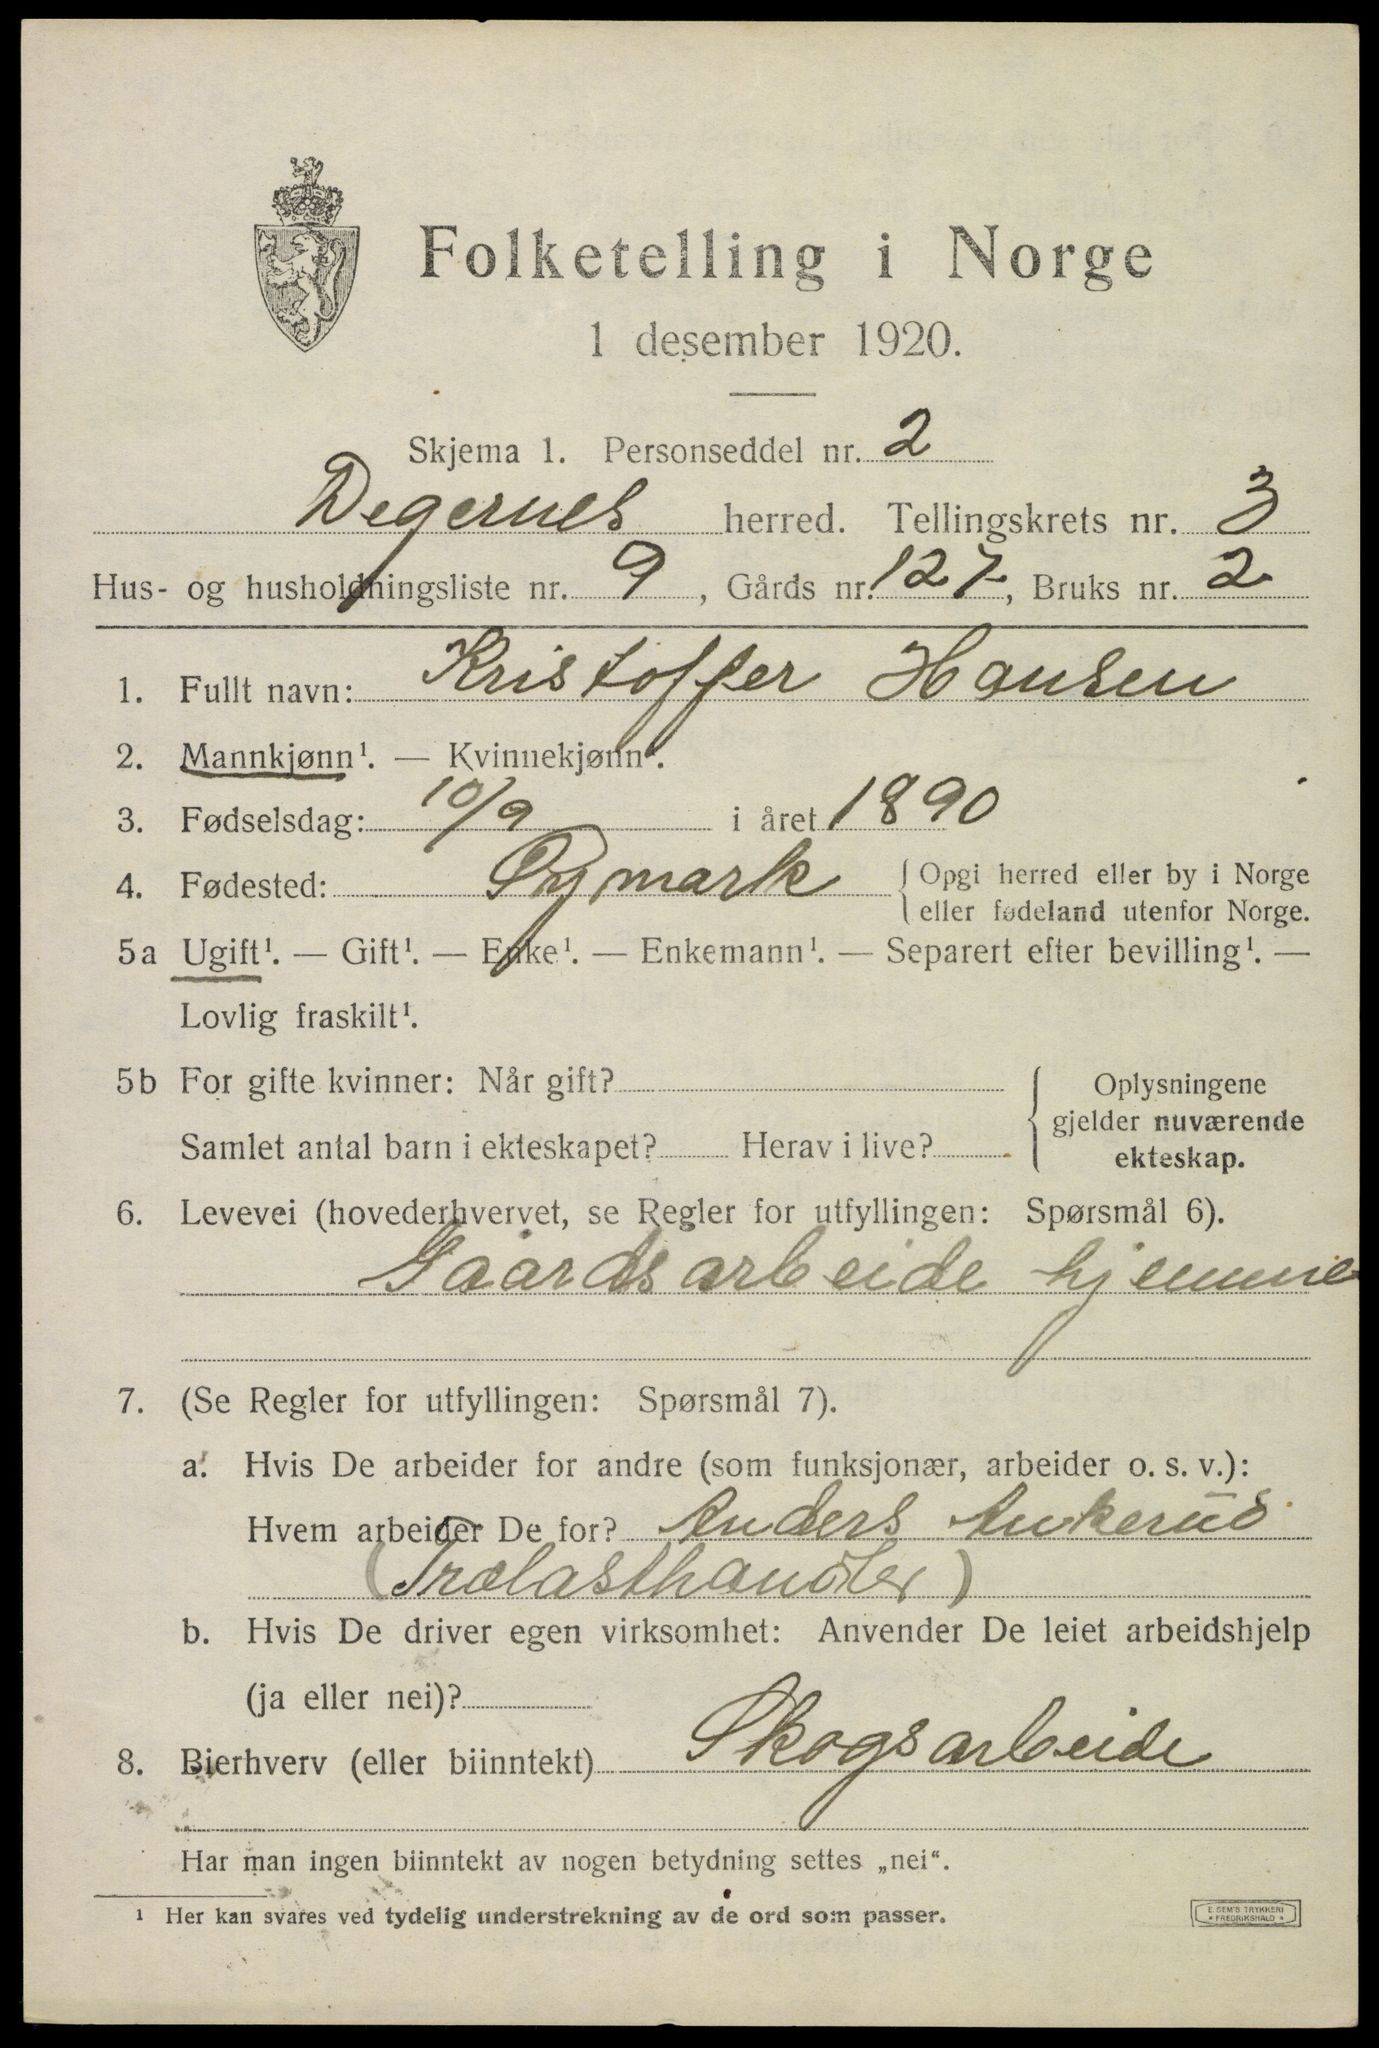 Folketelling i Norge
1 desember 1920.
Skjema 1. Personseddel nr. 2
Degernes herred. Tellingskrets nr. 3
Hus- og husholdningsliste nr. 9, Gårds nr. 127, Bruks nr. 2
1. Fullt navn: Kristoffer Hansen
2. Mannkjønn¹. — Kvinnekjønn¹.
3. Fødselsdag: 10/9 i året 1890
4. Fødested: Øymark {Opgi herred eller by i Norge
eller fødeland utenfor Norge.
5a Ugift¹. — Gift¹. — Enke¹. — Enkemann¹. — Separert efter bevilling¹. —
Lovlig fraskilt¹.
5b For gifte kvinner: Når gift? {Oplysningene
gjelder nuværende
Samlet antal barn i ekteskapet? Herav i live?
ekteskap.
6. Levevei (hovederhvervet, se Regler for utfyllingen: Spørsmål 6).
Gaardsarbeide hjemme
7. (Se Regler for utfyllingen: Spørsmål 7).
a. Hvis De arbeider for andre (som funksjonær, arbeider o. s. v.):
Hvem arbeider De for? Anders Ankerud
(Trælasthandler)
b. Hvis De driver egen virksomhet: Anvender De leiet arbeidshjelp
(ja eller nei)?
8. Bierhverv (eller biinntekt) Skogsarbeide
Har man ingen biinntekt av nogen betydning settes „nei“.
¹ Her kan svares ved tydelig understrekning av de ord som passer.
E. SEM'S TRYKKERI
* FREDRIKSHALD *